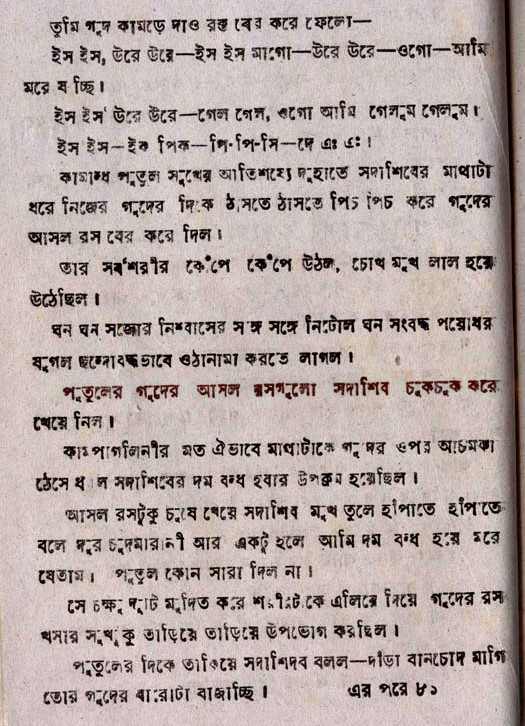 তুমি গুদ কামড়ে দাও রক্ত বের করে ফেলো—
ইস ইস, উরে উরে—ইস ইস মাগো—উরে উরে—ওগো—আমি
মরে যাচ্ছি।
ইস ইস উরে উরে—গেল গেল, ওগো আমি গেলুম গেলুম।
ইস ইস—ইক পিক—পি-পি-সি—দে এঃ এঃ।
কামান্ধ পুতুল সুখের আতিশয্যে দুহাতে সদাশিবের মাথাটা
ধরে নিজের গুদের দিকে ঠাসতে ঠাসতে পিচ পিচ করে গুদের
আসল রস বের করে দিল।
তার সর্বশরীর কেঁপে কেঁপে উঠল, চোখ মুখ লাল হয়ে
উঠেছিল।
ঘন ঘন সজোর নিশ্বাসের সঙ্গে সঙ্গে নিটোল ঘন সংবদ্ধ পয়োধর
যুগল ছন্দোবদ্ধভাবে ওঠানামা করতে লাগল।
পুতুলের গুদের আসল রসগুলো সদাশিব চুকচুক করে
খেয়ে নিল।
কামপাগলিনীর মত ঐভাবে মাথাটাকে গুদের ওপর আচমকা
ঠেসে ধরাল সদাশিবের দম বন্ধ হবার উপক্রম হয়েছিল।
আসল রসটুকু চুষে খেয়ে সদাশিব মুখ তুলে হাঁপাতে হাঁপাতে
বলে দুর চুদমারানী আর একটু হলে আমি দম বন্ধ হয়ে মরে
যেতাম। পুতুল কোন সারা দিল না।
সে চক্ষু দুটি মুদিত করে শরীরটাকে এলিয়ে দিয়ে গুদের রস
খসার সুখটুকু তাড়িয়ে তাড়িয়ে উপভোগ করছিল।
পুতুলের দিকে তাকিয়ে সদাশিব বলল—দাঁড়া বানচোদ মাগি
তোর গুদের বারোটা বাজাচ্ছি। এর পরে ৮১